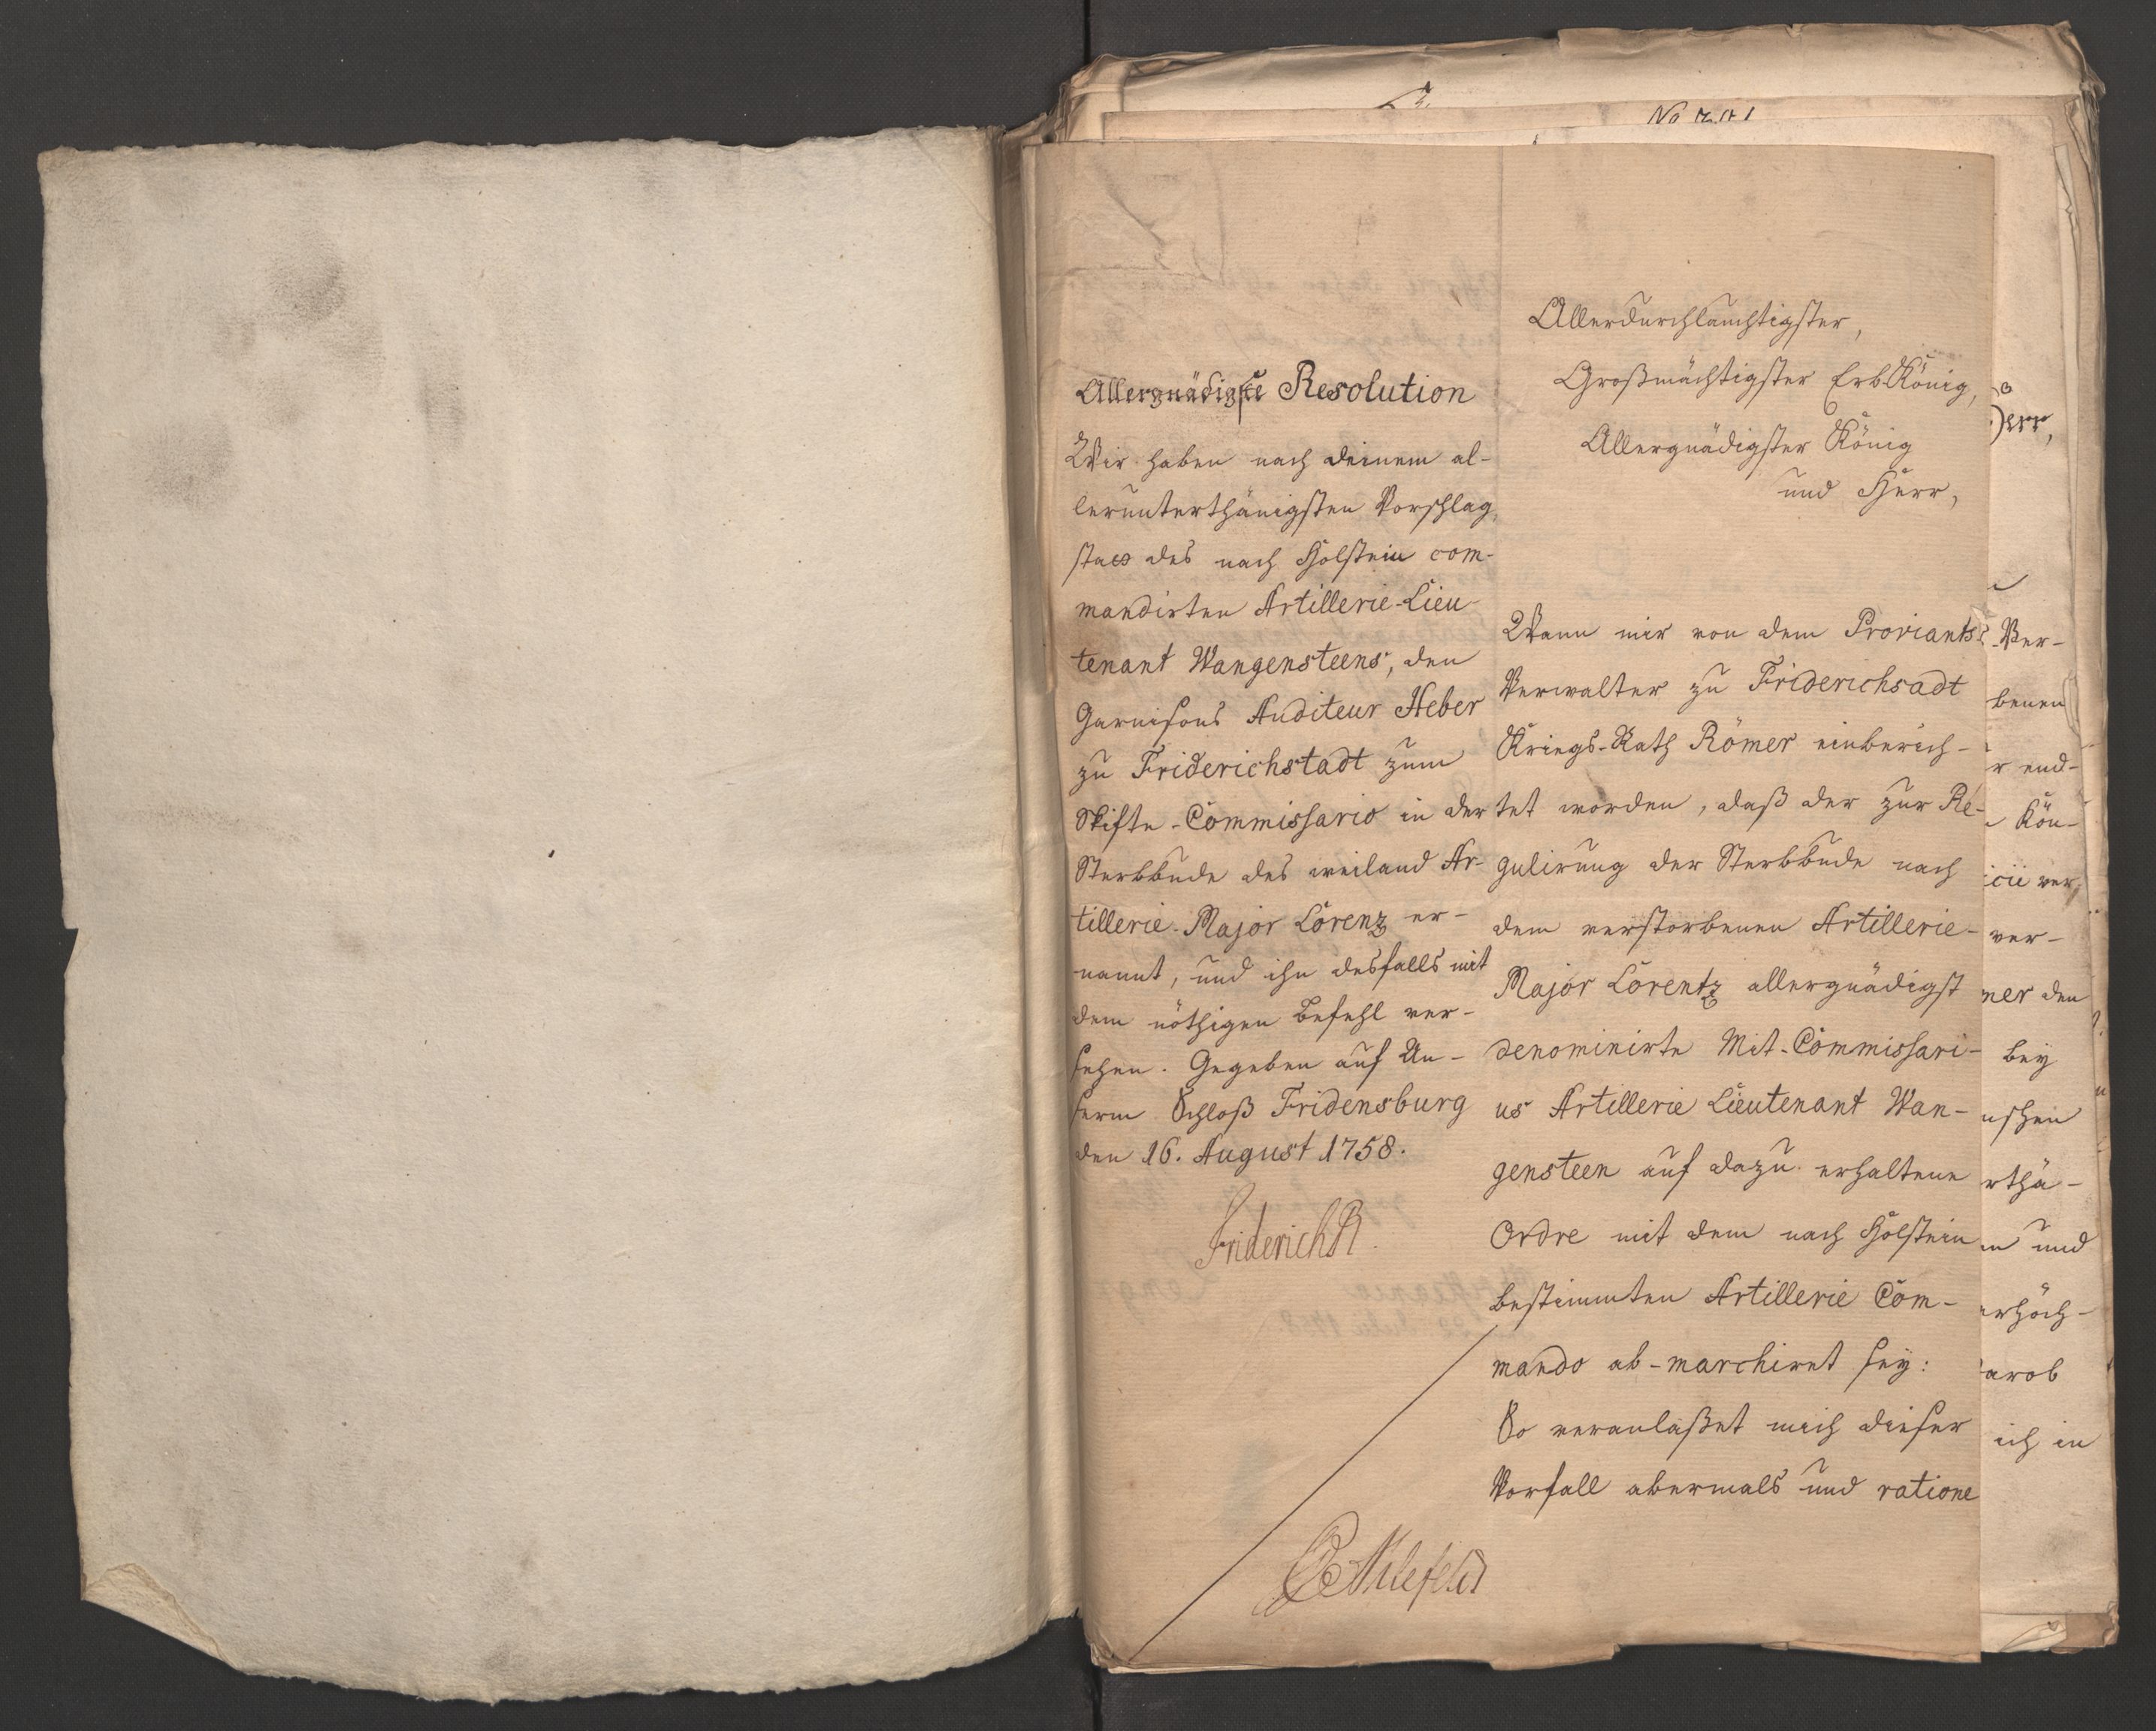 No
Allergnädigste Resolution
Wir haben nach deinem al-
lerunterthänigsten Vorschlag,
statt des nach Holstein com-
mandirten Artillerie-Lieu-
tenant Wangensteens, den
Garnisons Auditeur Heber
zu Friderichstadt zum
Skifte-Commissario in der
Sterbbude des weiland Ar-
tillerie-Major Lorenz er-
nannt, und ihn desfalls mit
dem nöthigen Befehl ver-
sehen. Gegeben auf Un-
serm Schloß Fridensburg
den 16. August 1758.
Friderich R.
Allerdurchlauchtigster,
Großmächtigster ErbKönig,
Allergnädigster König
und Herr,
Wann mir von dem Proviants
Verwalter zu Friderichsadt
Kriegs-Rath Römer einberich-
tet worden, daß der zur Re-
gulirung der Sterbbude nach
dem verstorbenen Artillerie-
Major Lorentz allergnädigst
denominirte Mit-Commissari-
us Artillerie Lieutenant Wan-
gensteen auf dazu erhaltene
Ordre mit dem nach Holstein
bestimmten Artillerie Com-
mando ab-marchiret sey:
So veranlaßet mich dieser
Vorfall abermals und ratione
Ahlefeldt
Ver-
benen
end-
Kön-
ver-
ver-
den
bey
und
ich in